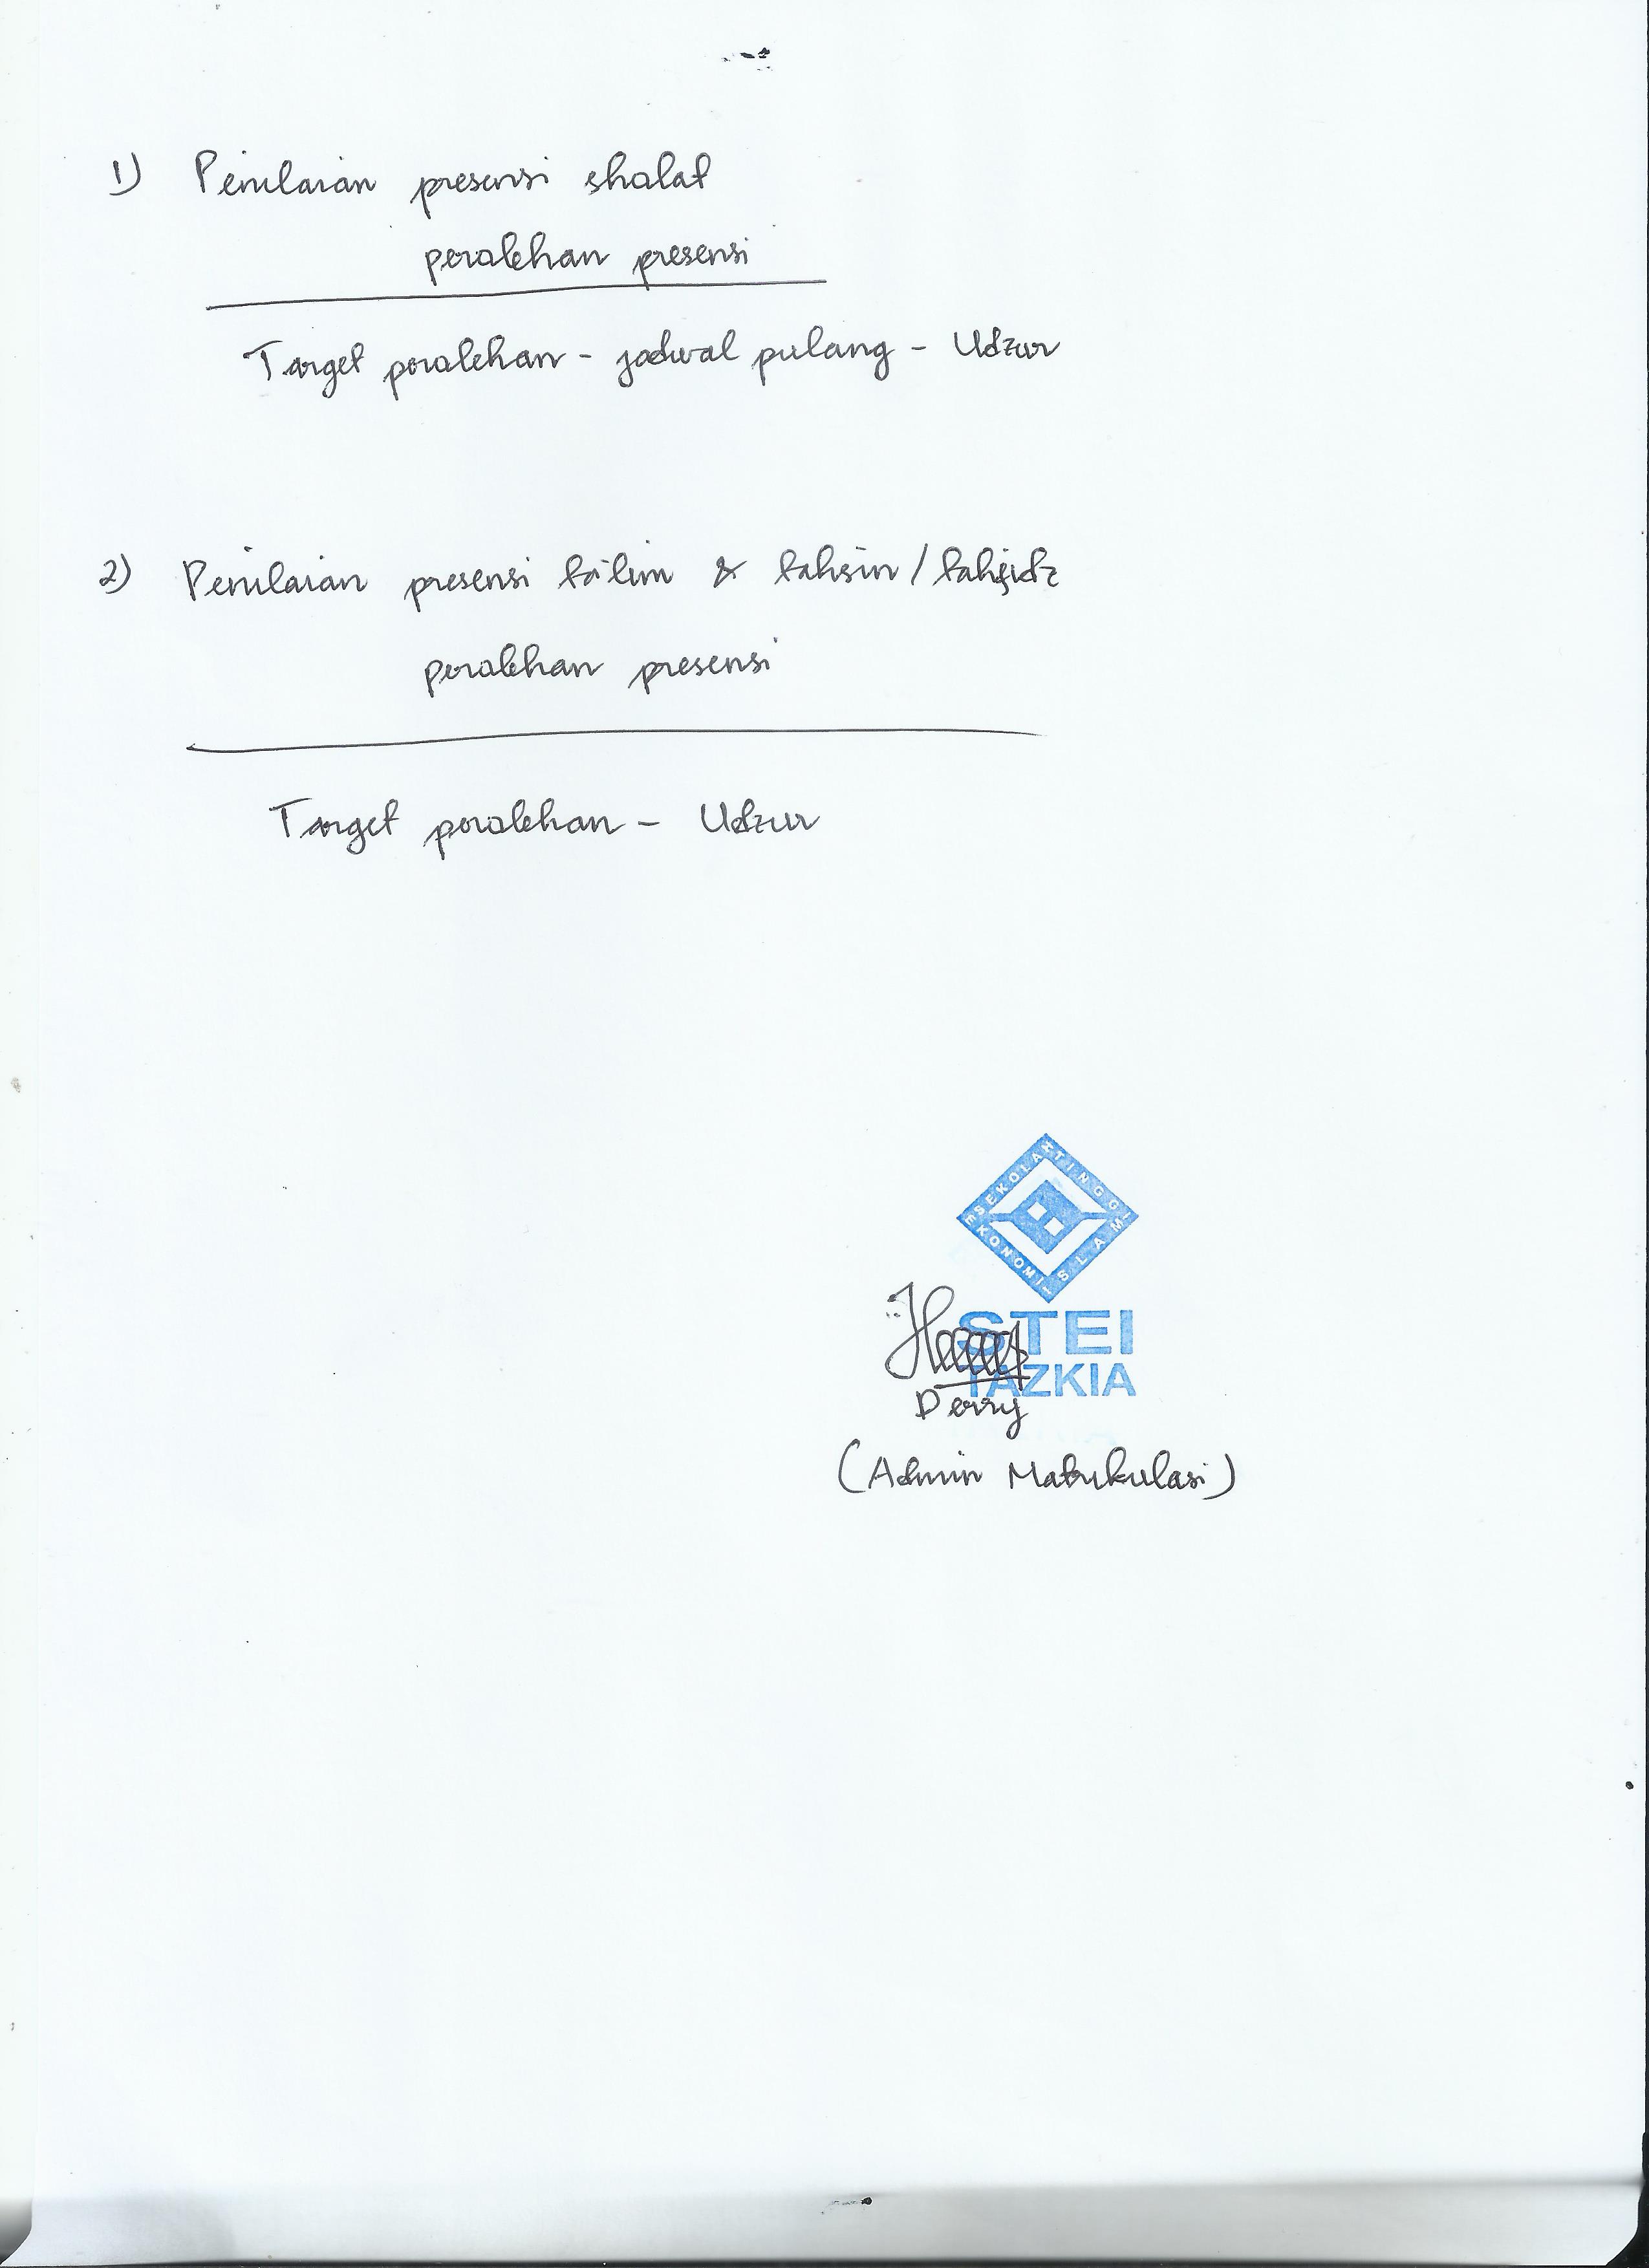 1) Penilaian presensi shalat
perolehan presensi
Target perolehan - jadwal pulang - Udzur
2) Penilaian presensi ta'lim & tahsin / tahfidz
perolehan presensi
Target perolehan - Udzur
SEKOLAH TINGGI
EKONOMI ISLAM
STEI
TAZKIA
Derry
(Admin Matrikulasi)